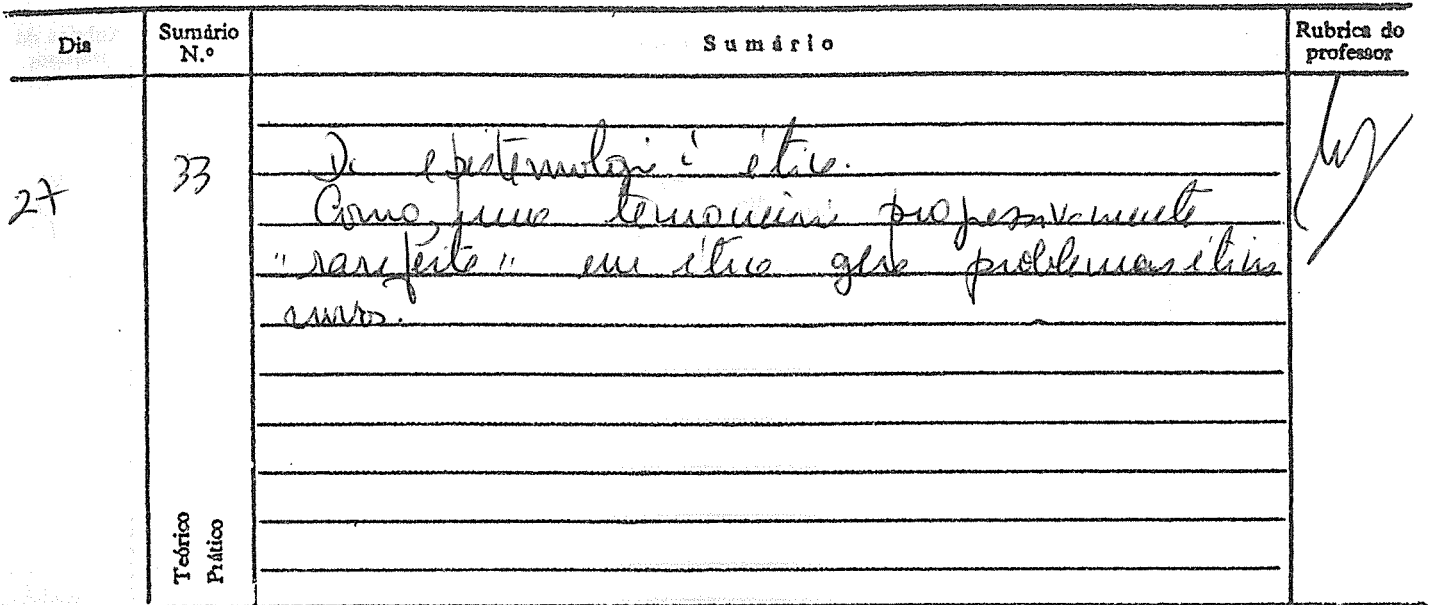 Dia Sumário N.º Sumário Rubrica do professor
27 33 Da epistemologia à ética.
Como uma progressivamente
"rarefeita" em ética gera problemas éticos
novos.
Teórico
Prático